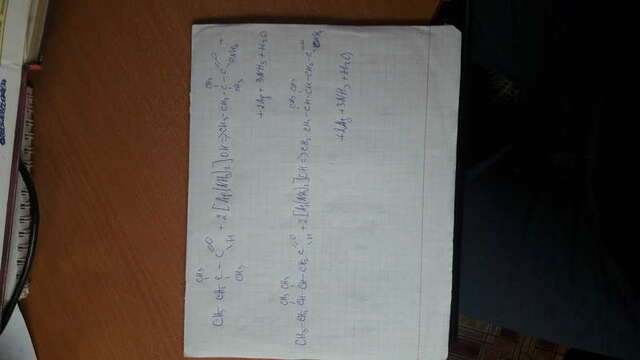 CH₃ CH₃
CH₃ CH₂ C - C =O + 2 [Ag(NH₃)₂]OH ⇒ CH₃ - CH₂ - C - C =O
CH₃ H CH₃ ONH₄
+ 2Ag + 3NH₃ + H₂O
CH₃ CH₃ CH₃ CH₃
CH₃ - CH₂ - CH - CH - CH₂ C =O + 2 [Ag(NH₃)₂]OH ⇒ CH₃ - CH₂ - CH - CH - CH₂ - C =O
H ONH₄
+ 2Ag + 3NH₃ + H₂O